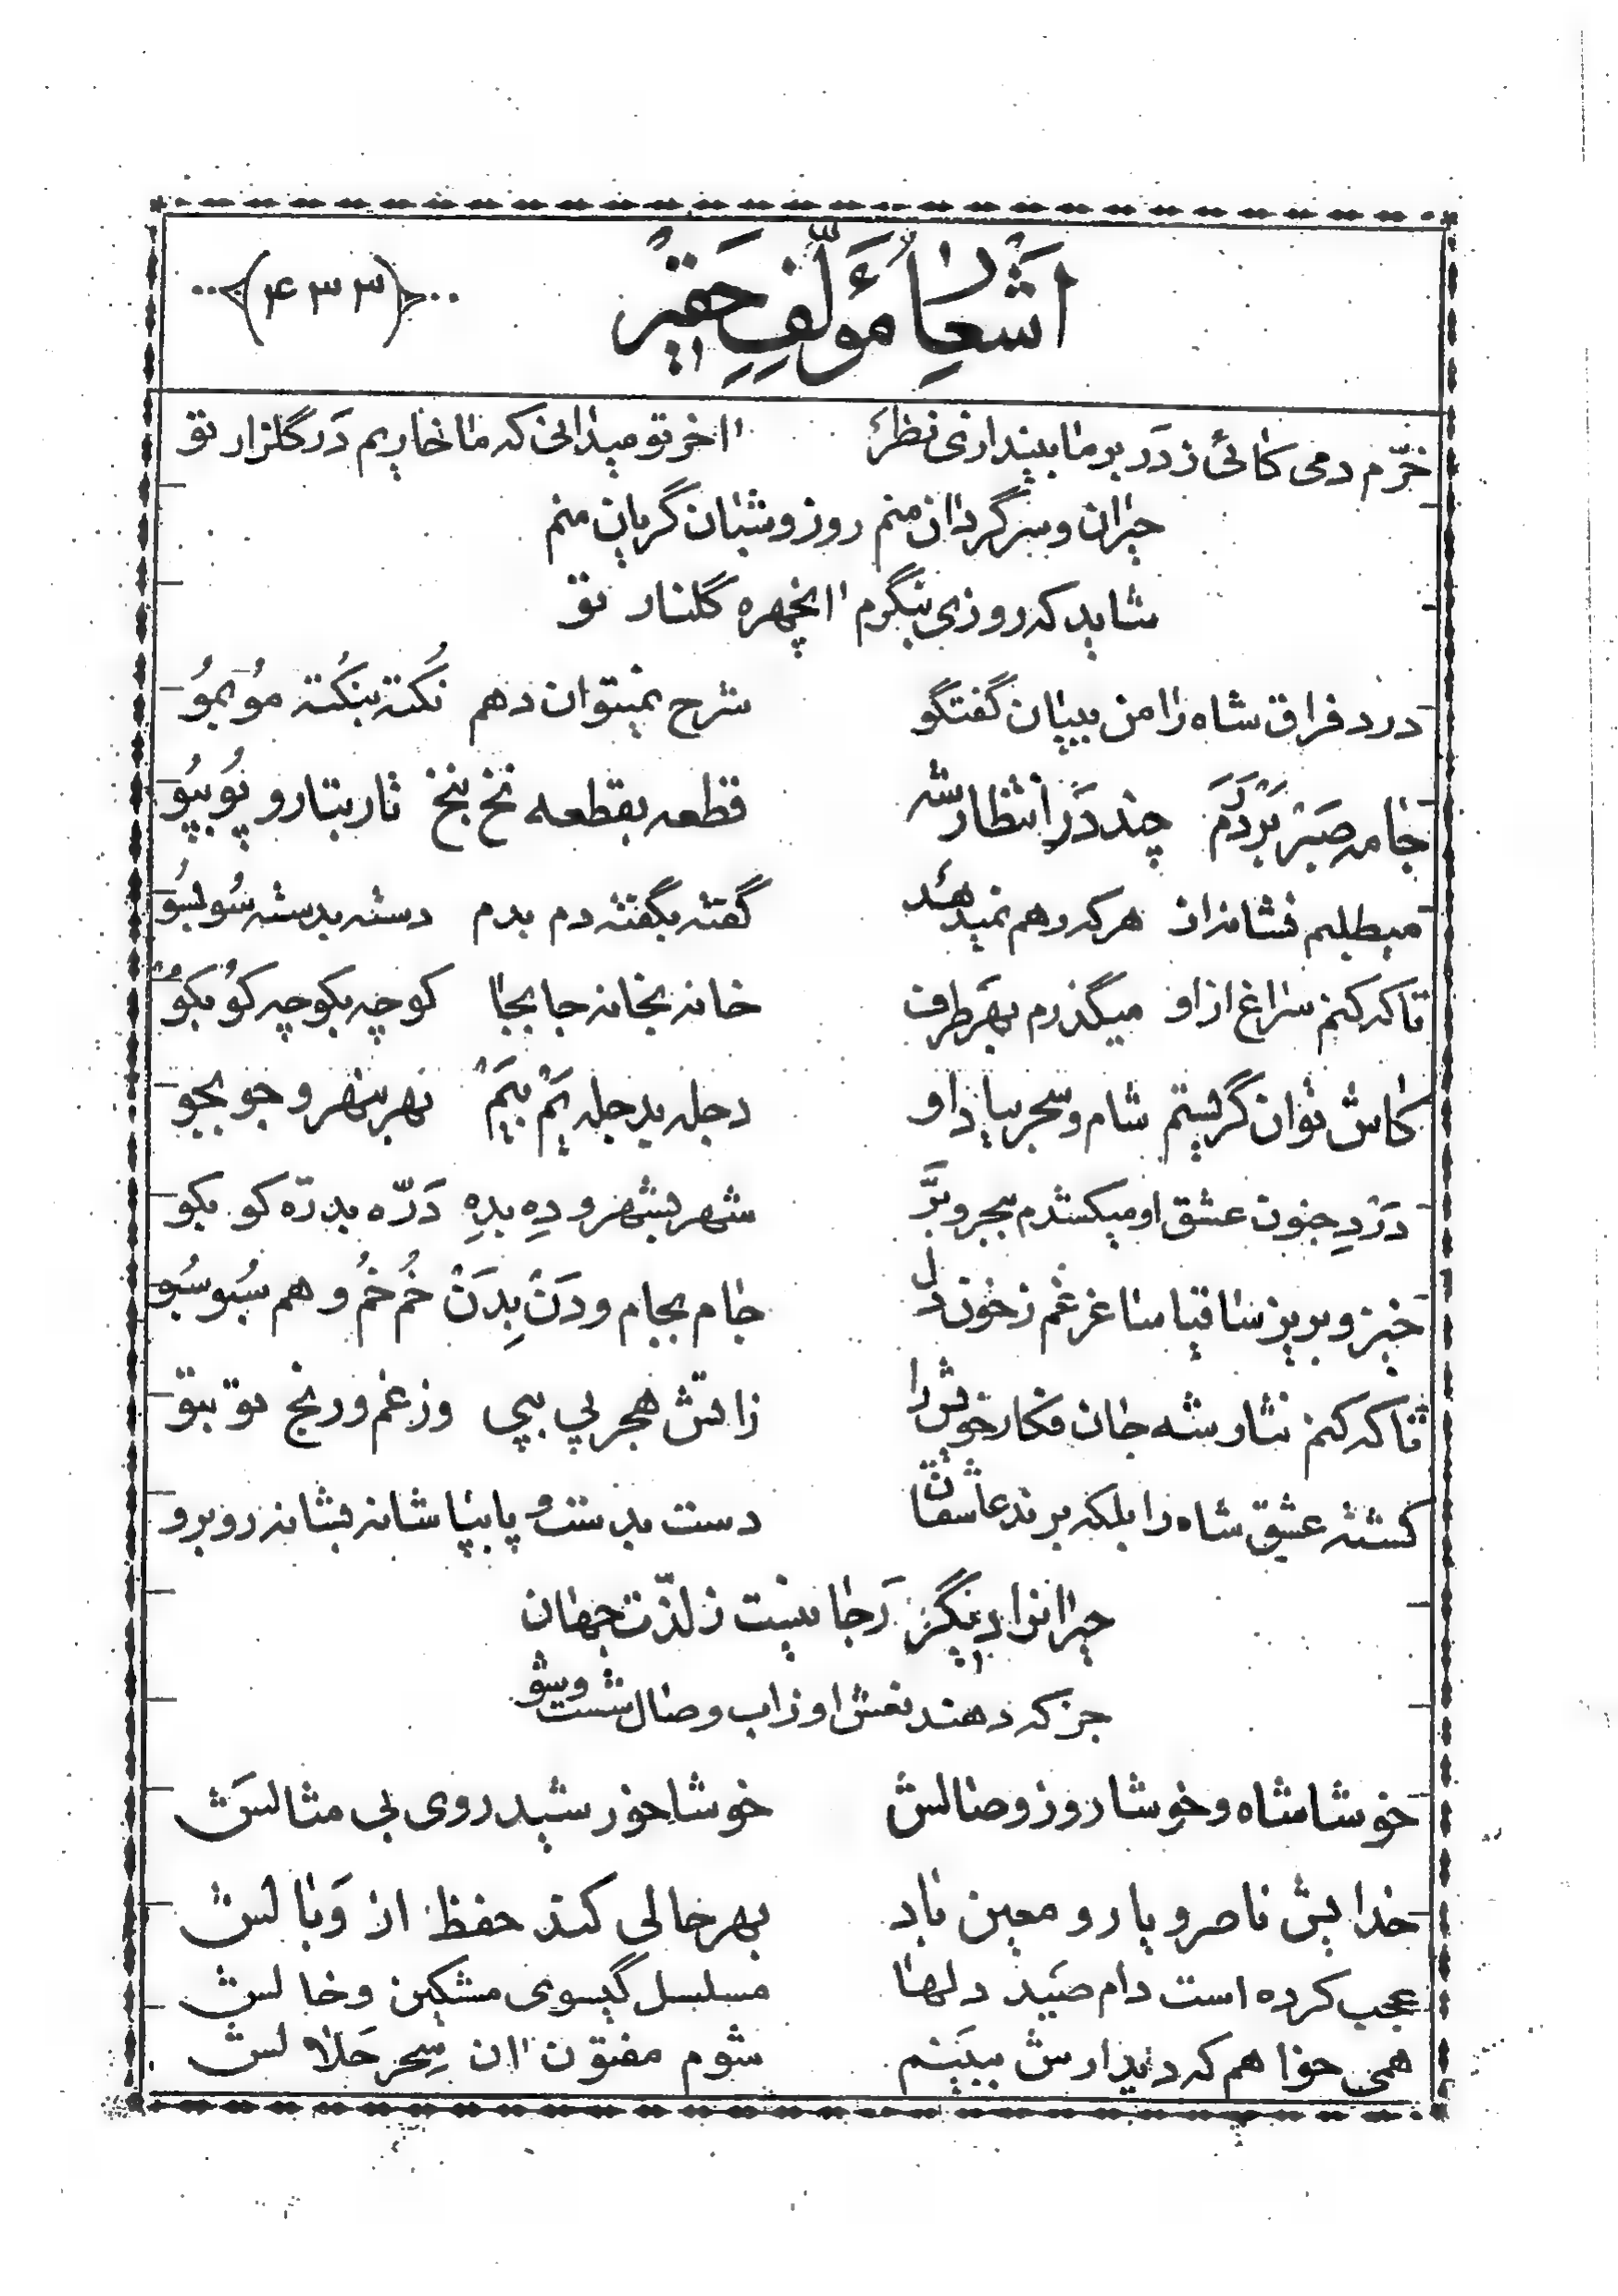 اَشْعارِ مُؤَلِّفِ حَقیرْ
(۴۳۳)
خرّم دمی کائی ز دَر بر ما بینداری نظرْ اخر تو میدانی که ما خاریم دَر گلزار تو
حیران و سرگردان منم روز و شبان گریان منم
شاید که روزی بنگرم انچهره گلنار تو
درد فراق شاه را من ببیان گفتگو شرح نمیتوان دهم نُکته بنکُته موُ بموُ
جامه صَبرْ بَرْدَرَمْ چند دَر انتظار شه قطعه بقطعه نخ بنخ تار بتار و پوُ بپوُ
میطلبم نشانه زان هر که رهم نمیدهد گفته بگفته دم بدم دسته بدسته سُو بسُو
تا که کنم سراغ از او میگذرم بهَر طرف خانه بخانه جا بجا کوچه بکوچه کوُ بکوُ
کاش توان گریستم شام و سحر بیاد او دجله بدجله یَمْ بیَمْ نهر بنهر و جو بجو
دَرْدِ جنون عشق او میکشدم ببحر و برّ شهر بشهر و دِه بدِه دَرّه بدرّه کو بکو
خیز و بریز ساقیا ساغر غم ز خون دل جام بجام و دَنْ بِدَنْ خُم خُم و هم سُبو سبو
تا که کنم نثار شه جان فکار خویش را زاتش هجر پی بپی وز غم و رنج تو بتو
کشته عشق شاه را بلکه برند عاشقان دست بدست و پا بپا شانه بشانه رو برو
حیرانرا دیگرْ رَجا نیست ز لذّت جهان
جز که دهند نعش او زاب وصال شست و شو
خوشا شاه و خوشا روز وصالش خوشا خورشید روی بی مثالَش
خدایش ناصر و یار و معین باد بهر حالی کند حفظ از وَبالش
عجب کرده است دام صَید دلها مسلسل گیسوی مشکین و خالش
همی خواهم که دیدارش ببینم شوم مفتون ان سِحر حَلالش